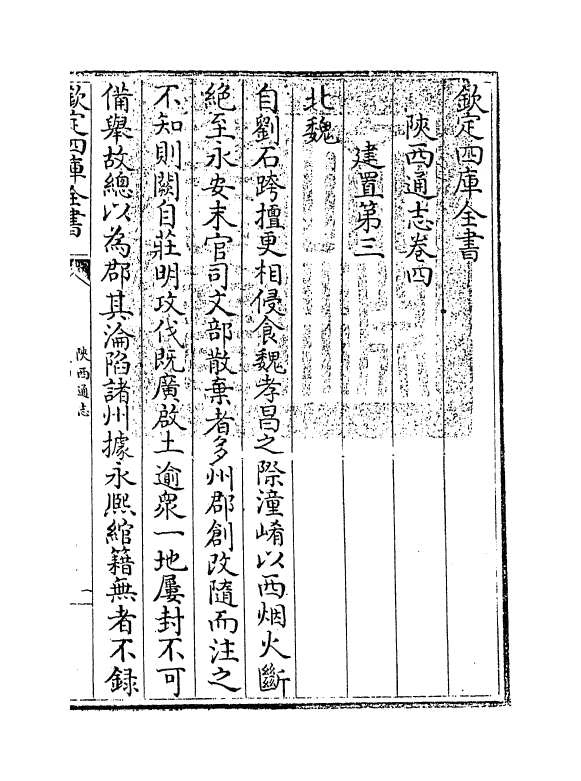 欽定四庫全書
陜西通志卷四
建置第三
北魏
自劉石跨擅更相侵食魏孝昌之際潼崤以西烟火斷
絶至永安末官司文部散棄者多州郡創改隨而注之
不知則闕自莊明攻伐既廣啟土逾衆一地屢封不可
備舉故總以為郡其淪陷諸州據永熈綰籍無者不録
欽定四庫全書
陜西通志
一